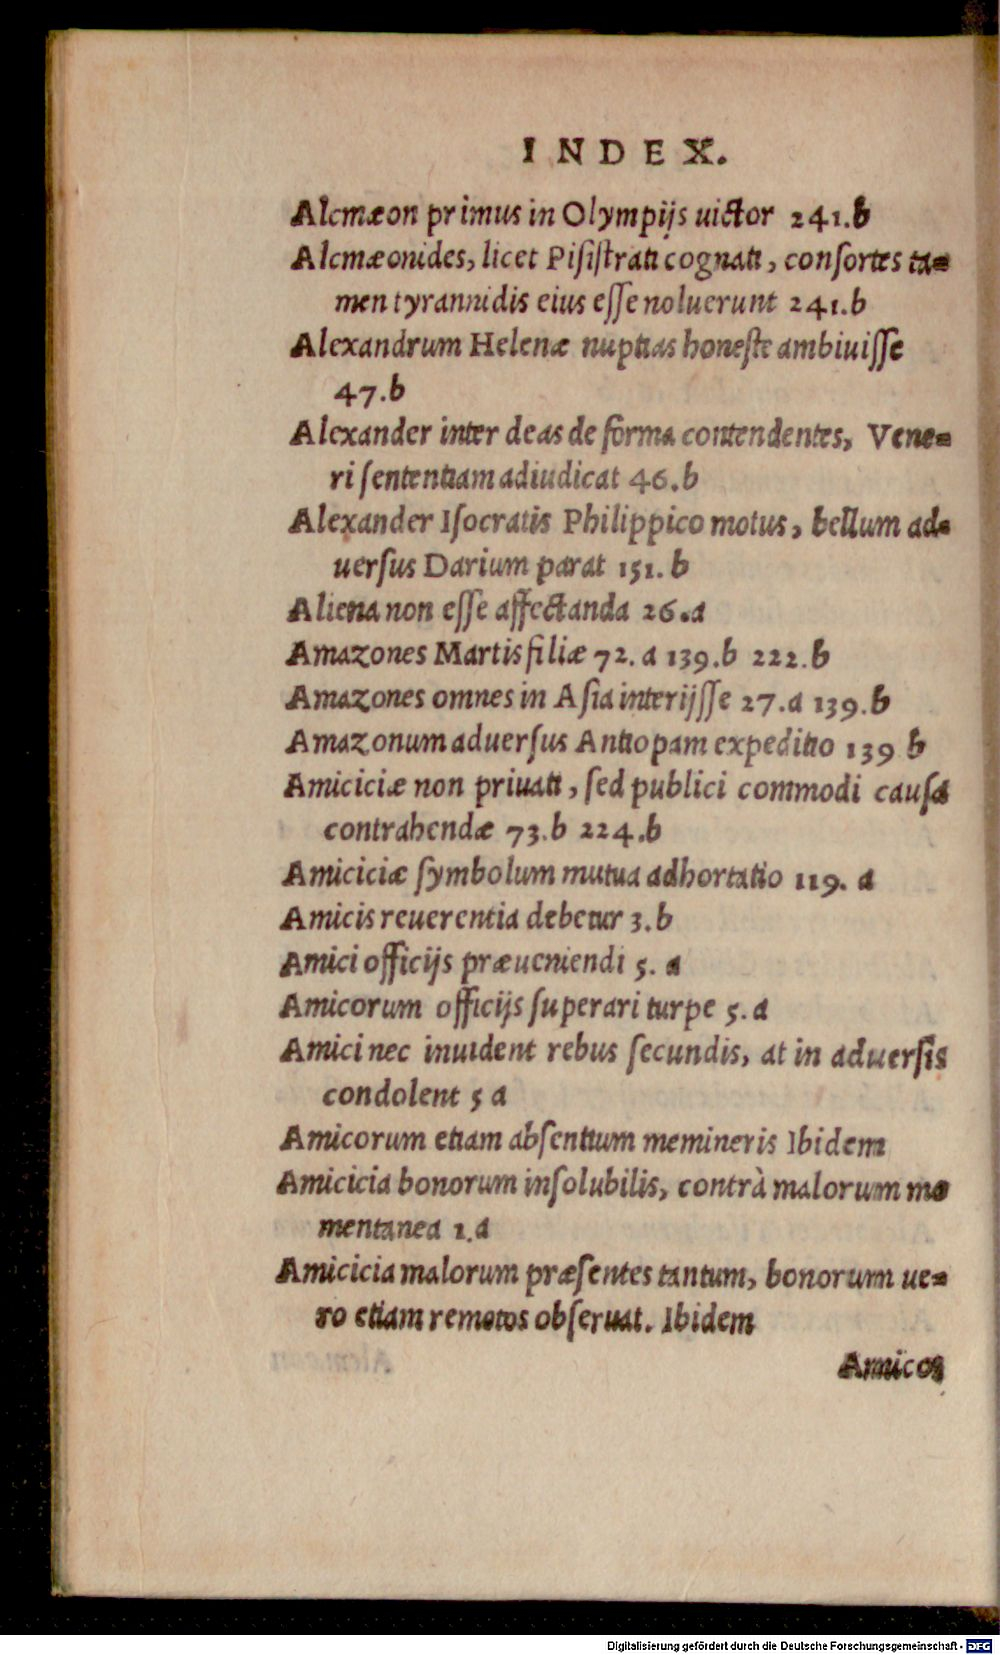 INDEX.
Alcmæon primus in Olympijs uictor 241.b
Alcmæonides, licet Pisistrati cognati, consortes ta-
men tyrannidis eius esse noluerunt 241.b
Alexandrum Helenæ nuptias honeste ambiuisse
47.b
Alexander inter deas de forma contendentes, Vene-
ri sententiam adiudicat 46.b
Alexander Isocratis Philippico motus, bellum ad-
uersus Darium parat 151.b
Aliena non esse affectanda 26.a
Amazones Martis filiæ 72.a 139.b 222.b
Amazones omnes in Asia interijsse 27.a 139.b
Amazonum aduersus Antiopam expeditio 139 b
Amiciciæ non priuati, sed publici commodi causa
contrahendæ 73.b 224.b
Amiciciæ symbolum mutua adhortatio 119. a
Amicis reuerentia debetur 3.b
Amici officijs præueniendi 5. a
Amicorum officijs superari turpe 5.a
Amici nec inuident rebus secundis, at in aduersis
condolent 5 a
Amicorum etiam absentium memineris Ibidem
Amicicia bonorum insolubilis, contrà malorum mo
mentanea 1.a
Amicicia malorum præsentes tantum, bonorum ue-
ro etiam remotos obseruat. Ibidem
Amicos
Digitalisierung gefördert durch die Deutsche Forschungsgemeinschaft - DFG